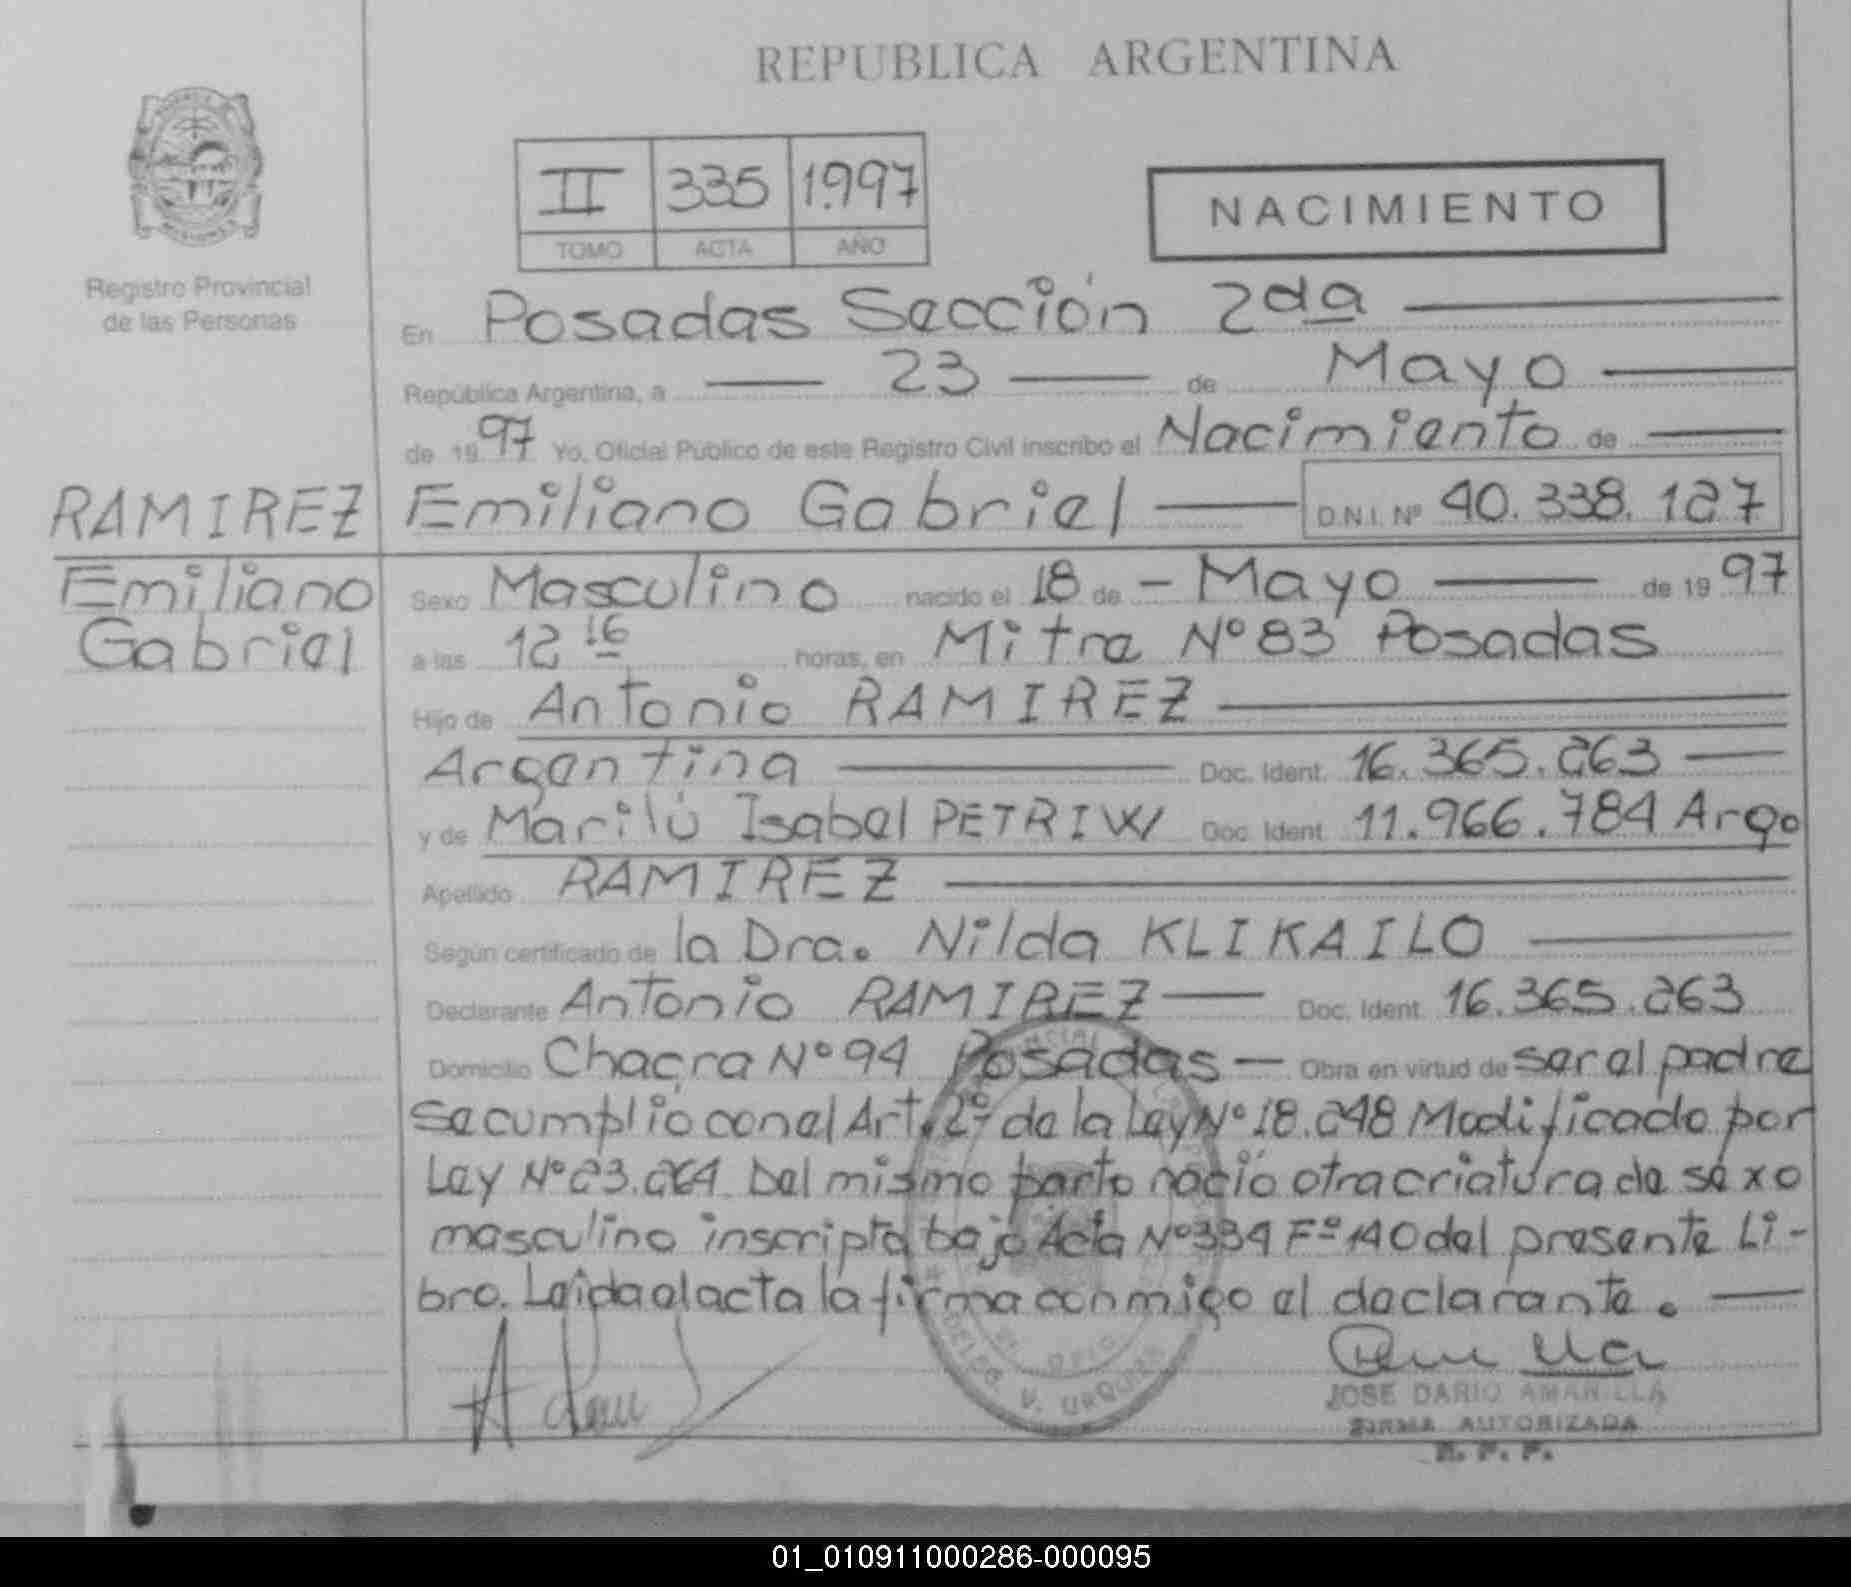 REPUBLICA ARGENTINA
II 335 1.997
TOMO ACTA AÑO
NACIMIENTO
Registro Provincial
de las Personas
En Posadas Sección 2da
República Argentina, a 23 de Mayo
de 1997 Yo, Oficial Público de este Registro Civil inscribo el Nacimiento de
RAMIREZ
Emiliano
Gabriel
Emiliano Gabriel D.N.I. Nº 40.338.127
Sexo Masculino nacido el 18 de - Mayo de 1997
a las 12 16 horas, en Mitre Nº 83 Posadas
Hijo de Antonio RAMIREZ
Argentina Doc. Ident. 16.365.263
y de Marilú Isabel PETRIW Doc. Ident. 11.966.784 Argo
Apellido RAMIREZ
Según certificado de la Dra. Nilda KLIKAILO
Declarante Antonio RAMIREZ Doc. Ident. 16.365.263
Domicilio Chacra Nº 94 Posadas - Obra en virtud de ser el padre
se cumplió con el Art. 2º de la Ley Nº 18.248 Modificado por
Ley Nº 23.264. Del mismo parto nació otra criatura de sexo
masculino inscripta bajo Acta Nº 334 Fº 140 del presente Li-
bro. Leída el acta la firma conmigo el declarante.
JOSE DARIO AMARILLA
FIRMA AUTORIZADA
R. P. P.
DELEG. V. URQUIZA
01_010911000286-000095